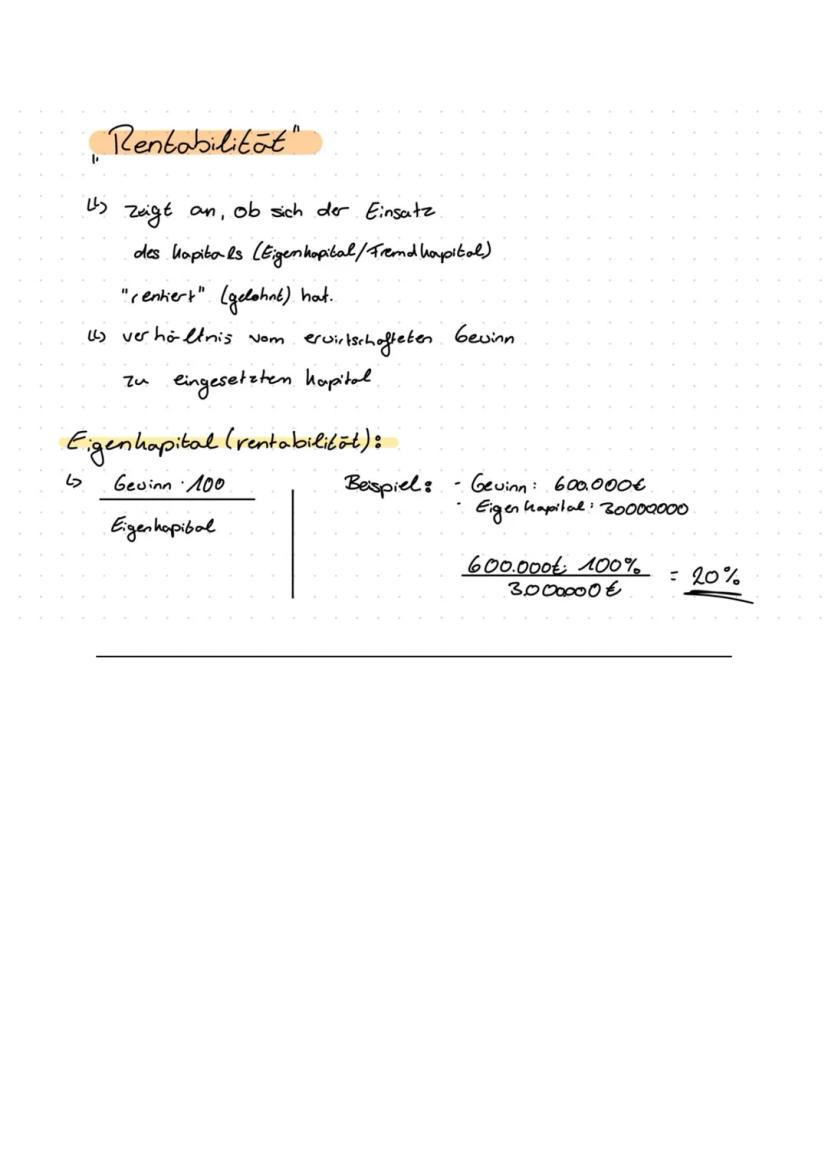 „Rentabilität"
↳ zeigt an, ob sich der Einsatz
des Kapitals (Eigenkapital/Fremdkapital)
"rentiert" (gelohnt) hat.
↳ verhältnis vom erwirtschafteten Gewinn
zu eingesetzten Kapital
Eigenkapital(rentabilität):
↳ Gewinn · 100
Eigenkapital
Beispiel: - Gewinn: 600.000€
- Eigenkapital: 30000000
600.000€ · 100%
3.000000€
= 20%